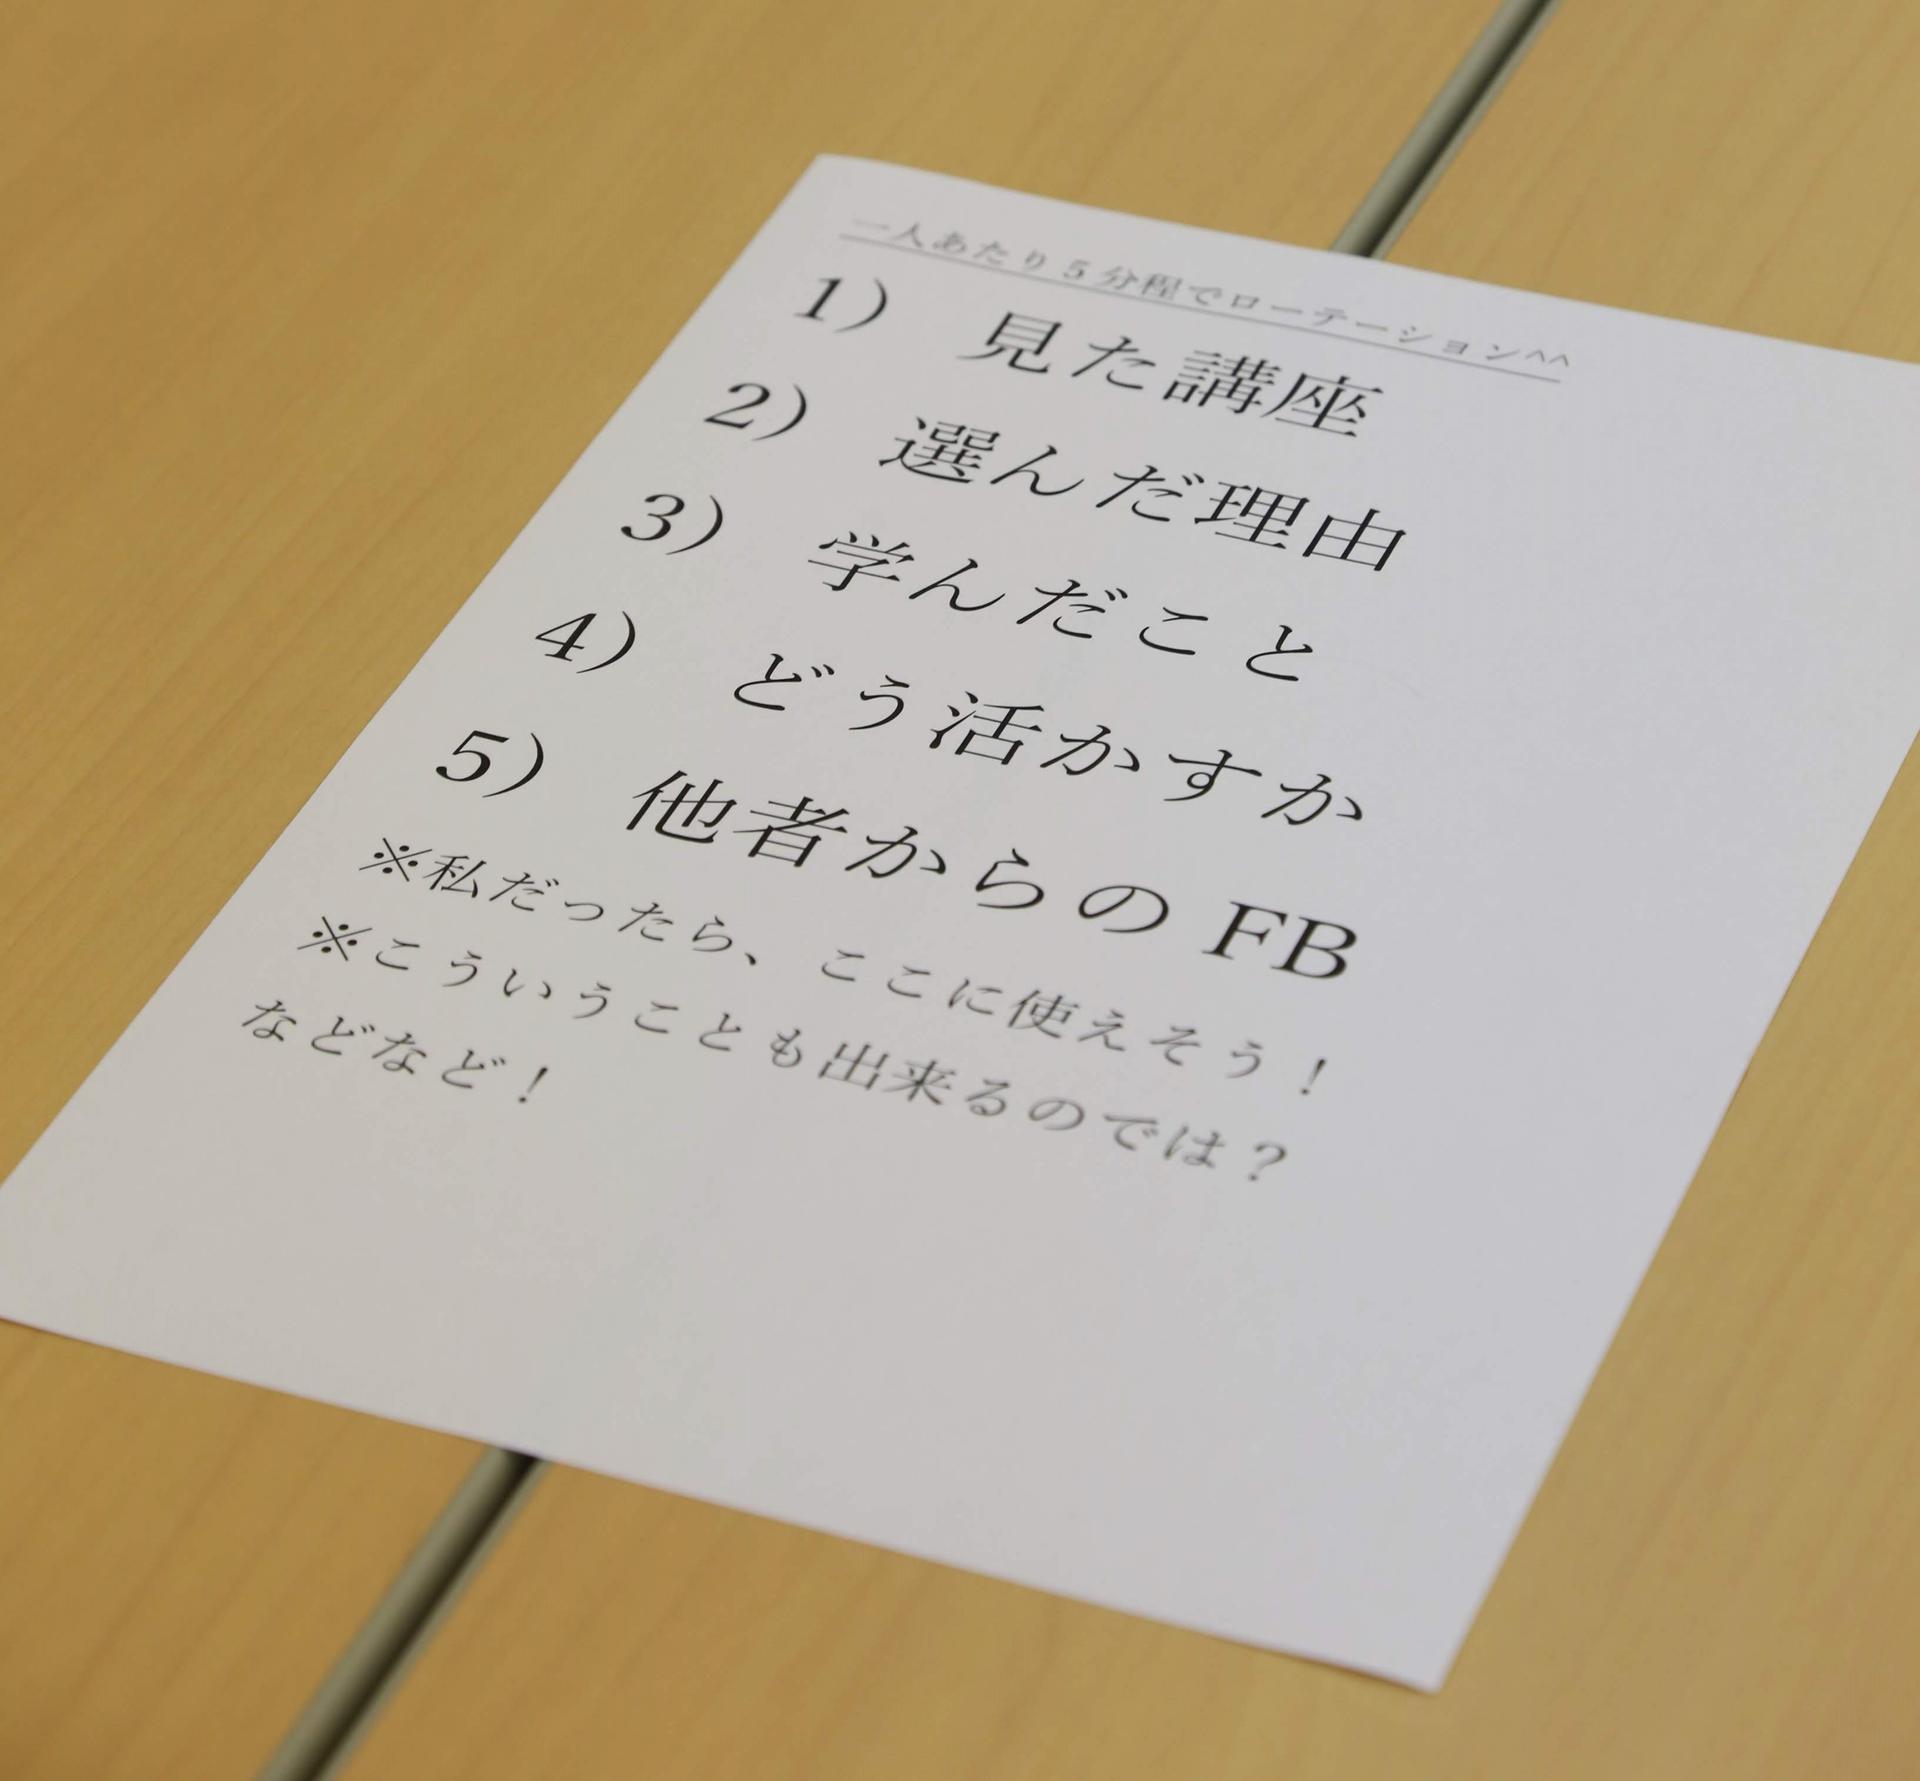 一人あたり5分程でローテーション^^
1) 見た講座
2) 選んだ理由
3) 学んだこと
4) どう活かすか
5) 他者からのFB
※私だったら、ここに使えそう！
※こういうことも出来るのでは？
などなど！